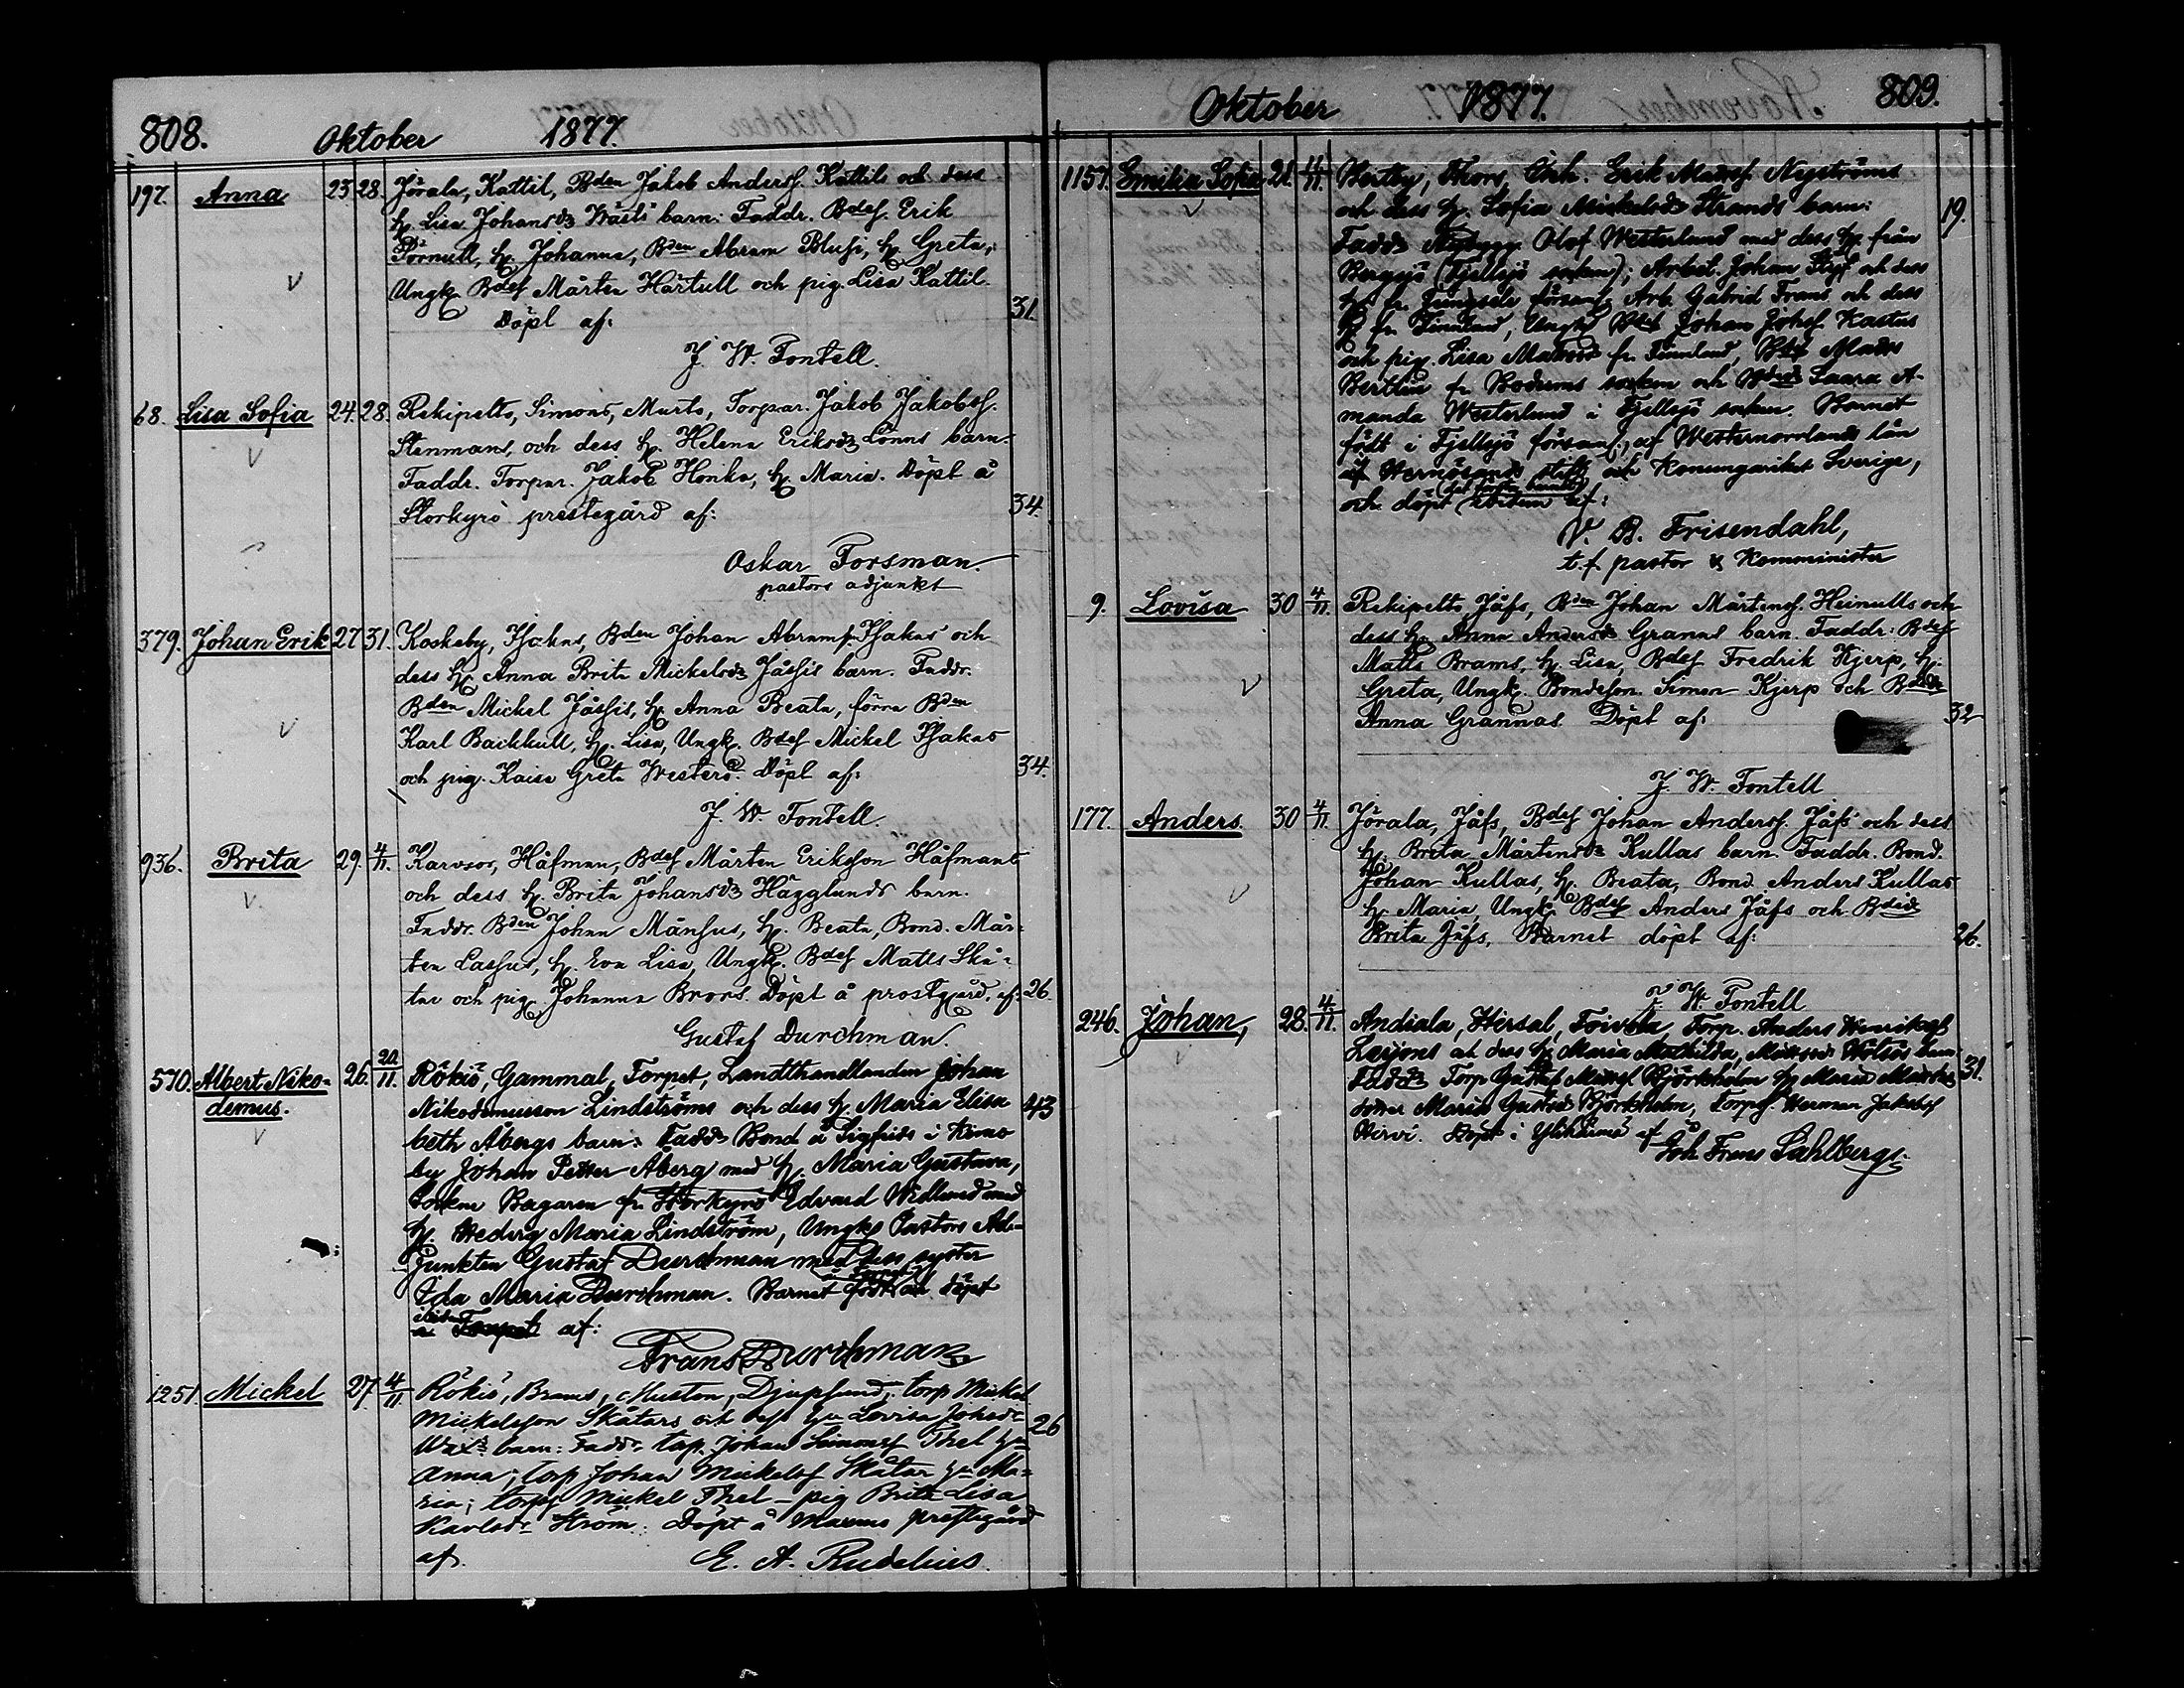 808. Oktober 1877.
197. Anna 23. 28. Jörala, Kattil, Bden Jakob Anderss. Kattils och dess
h. Lisa Johansdr Wästs barn: Faddr. Bdes. Erik
Pörnull, h. Johanna, Bden Abram Blusi, h. Greta,
Ungk. Bdes Mårten Härtull och pig. Lisa Kattil.
Döpt af: 31.
J. W. Fontell.
68. Lisa Sofia 24. 28. Rekipelto, Simons, Murto, Torpar. Jakob Jakobss.
Stenmans, och dess h. Helena Eriksdr Lönns barn.
Faddr. Torpar. Jakob Honka, h. Maria. Döpt å
Storkyrö prestegård af: 34.
Oskar Forsman.
pastors adjunkt
379. Johan Erik 27 31. Koskeby, Isakas, Bden Johan Abramss. Isakas och
dess h. Anna Brita Mickelsdr Jåssis barn. Faddr.
Bden Mickel Jåssis, h. Anna Beata, förra Bden
Karl Backkull, h. Lisa, Ungk. Bdes Mickel Isakas
och pig. Kaisa Greta Westers. Döpt af: 34.
J. W. Fontell.
936. Brita 29. 4/11. Karvsor, Håfman, Bdes Mårten Eriksson Håfmans
och dess h. Brita Johansdr Hägglunds barn.
Faddr. Bden Johan Månsus, h. Beata, Bond. Mår-
ten Lassus, h. Eva Lisa, Ungk. Bdes Matts Skå-
tar och pig. Johanna Brors. Döpt å prostgård. af: 26.
Gustaf Durchman.
510. Albert Niko- 26. 20/11. Rökiö, Gammal, Torpet, Landthandlanden Johan
demus. Nikodemusson Lindströms och dess h. Maria Elisa 43
beth Åbergs barn: Faddr Bond å Sigfrids i Kimo
by Johan Petter Åberg med h. Maria Gustava,
Socken Bagaren fr. Storkyro Edvard Widlund med
h. Hedvig Maria Lindström, Ungk. Pastors Ad-
junkten Gustaf Durchman med dess syster
Ida Maria Durchman. Barnet född och döpt
af:
Frans Durchman
1251. Mickel 27. 4/11. Rökiö, Brams, Muston, Djupsund, torp Mickel
Mickelsson Skåtars och dess hu Lovisa Johsdr 26
barn: Faddr torp. Johan Simonsf Thel hu
Anna; torp Johan Mickelsf Skåtar hu Ma-
ria; torpf Mickel Thel – pig Brita Lisa
Karlsdr Ström: Döpt å Maxmo prestegård
af. E. A. Rudelius.
Oktober 1877. 809.
1157. Emilia Sofia 21. 4/11. Bertby, Thors, Inh. Erik Matsf Nyströms
och dess h. Sofia Mickelsdr Strands barn: 19.
Faddr Nybygg. Olof Westerlund med dess h. från
Bergsjö (Fjellsjö socken); Arbet. Johan Styf och dess
h. fr. församl; Arb. Gabriel Frans och dess
h. fr. Finnland, Ungk. Bdes Johan Johsf Kastus
och pig. Lisa Matsdr fr. Finnland, Bdes Mats
Bertlin fr. Bodums socken och Bdedr Saara A-
manda Westerlund i Fjellsjö socken. Barnet
fött i Fjellsjö församl., af Westernorrlands län
af Hernösands stift och Konungariket Sverige,
och döpt ibidem af:
V. B. Frisendahl,
t.f. pastor & Komminister
9. Lovisa 30 4/11. Rekipelto, Jåfs, Bden Johan Mårtenss. Heinulls och
dess h. Anna Andersdr Grannas barn. Faddr: Bdes
Matts Brams, h. Lisa, Bdes Fredrik Kjerp, h.
Greta, Ungk. Bondeson. Simon Kjerp och Bdedr
Anna Grannas. Döpt af: 32
J. W. Fontell
177. Anders. 30 4/11. Jörala, Jåfs, Bdes Johan Anderss. Jåfs och dess
h. Brita Mårtensdr Kullas barn. Faddr. Bond.
Johan Kullas, h. Beata, Bond Anders Kullas
h. Maria, Ungk. Bdes Anders Jåfs och Bdedr
Brita Jåfs. Barnet döpt af: 26.
J. W. Fontell
246. Johan, 28. 4/11. Andiala, Hirsal, Toivola, Torp. Anders Henriksf
och dess h. Maria Mathilda, Mattsdr barn 31.
Faddr Torp Gustaf Mattsf Björkholm h. Maria Matts
dotter Maria Gustdr Björkholm, Torpf. Herman Jakobsf
Hirvi. Döpt i Ylihärmä af
Joh. Frans Sahlberg.